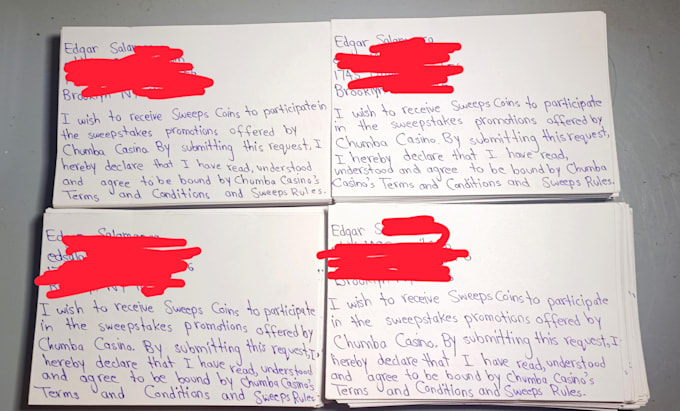 Edgar
Brooklyn
I wish to receive Sweeps Coins to participate in
the sweepstakes promotions offered by
Chumba Casino By submitting this request, I
hereby declare that I have read, understood
and agree to be bound by Chumba Casino's
Terms and Conditions and Sweeps Rules.
Edgar
I wish to receive Sweeps Coins to participate
in the sweepstakes promotions offered by
Chumba Casino. By submitting this request,
I hereby declare that I have read,
understood and agree to be bound by Chumba
Casino's Terms and Conditions and Sweeps Rules.
I wish to receive Sweeps Coins to participate
in the sweepstakes promotions offered by
Chumba Casino. By submitting this request, I
hereby declare that I have read, understood
and agree to be bound by Chumba Casino's
Terms and Conditions and Sweeps Rules.
Edgar
I wish to receive Sweeps Coins to participate
in the sweepstakes promotions offered by
Chumba Casino. By submitting this request, I
hereby declare that I have read, understood
and agree to be bound by Chumba Casino's
Terms and Conditions and Sweeps Rules.